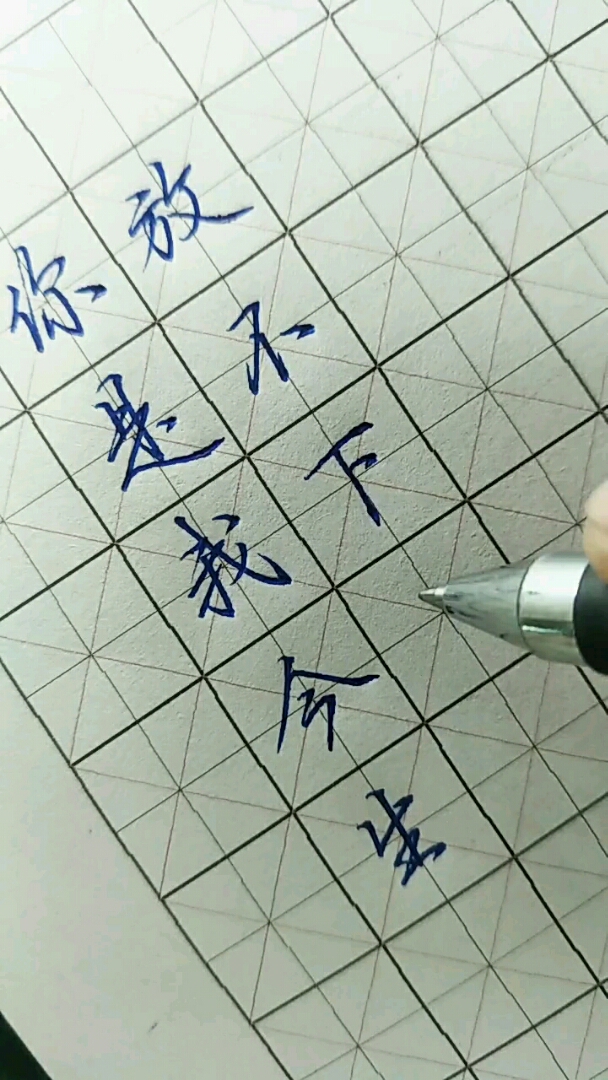 你是我今生
放不下